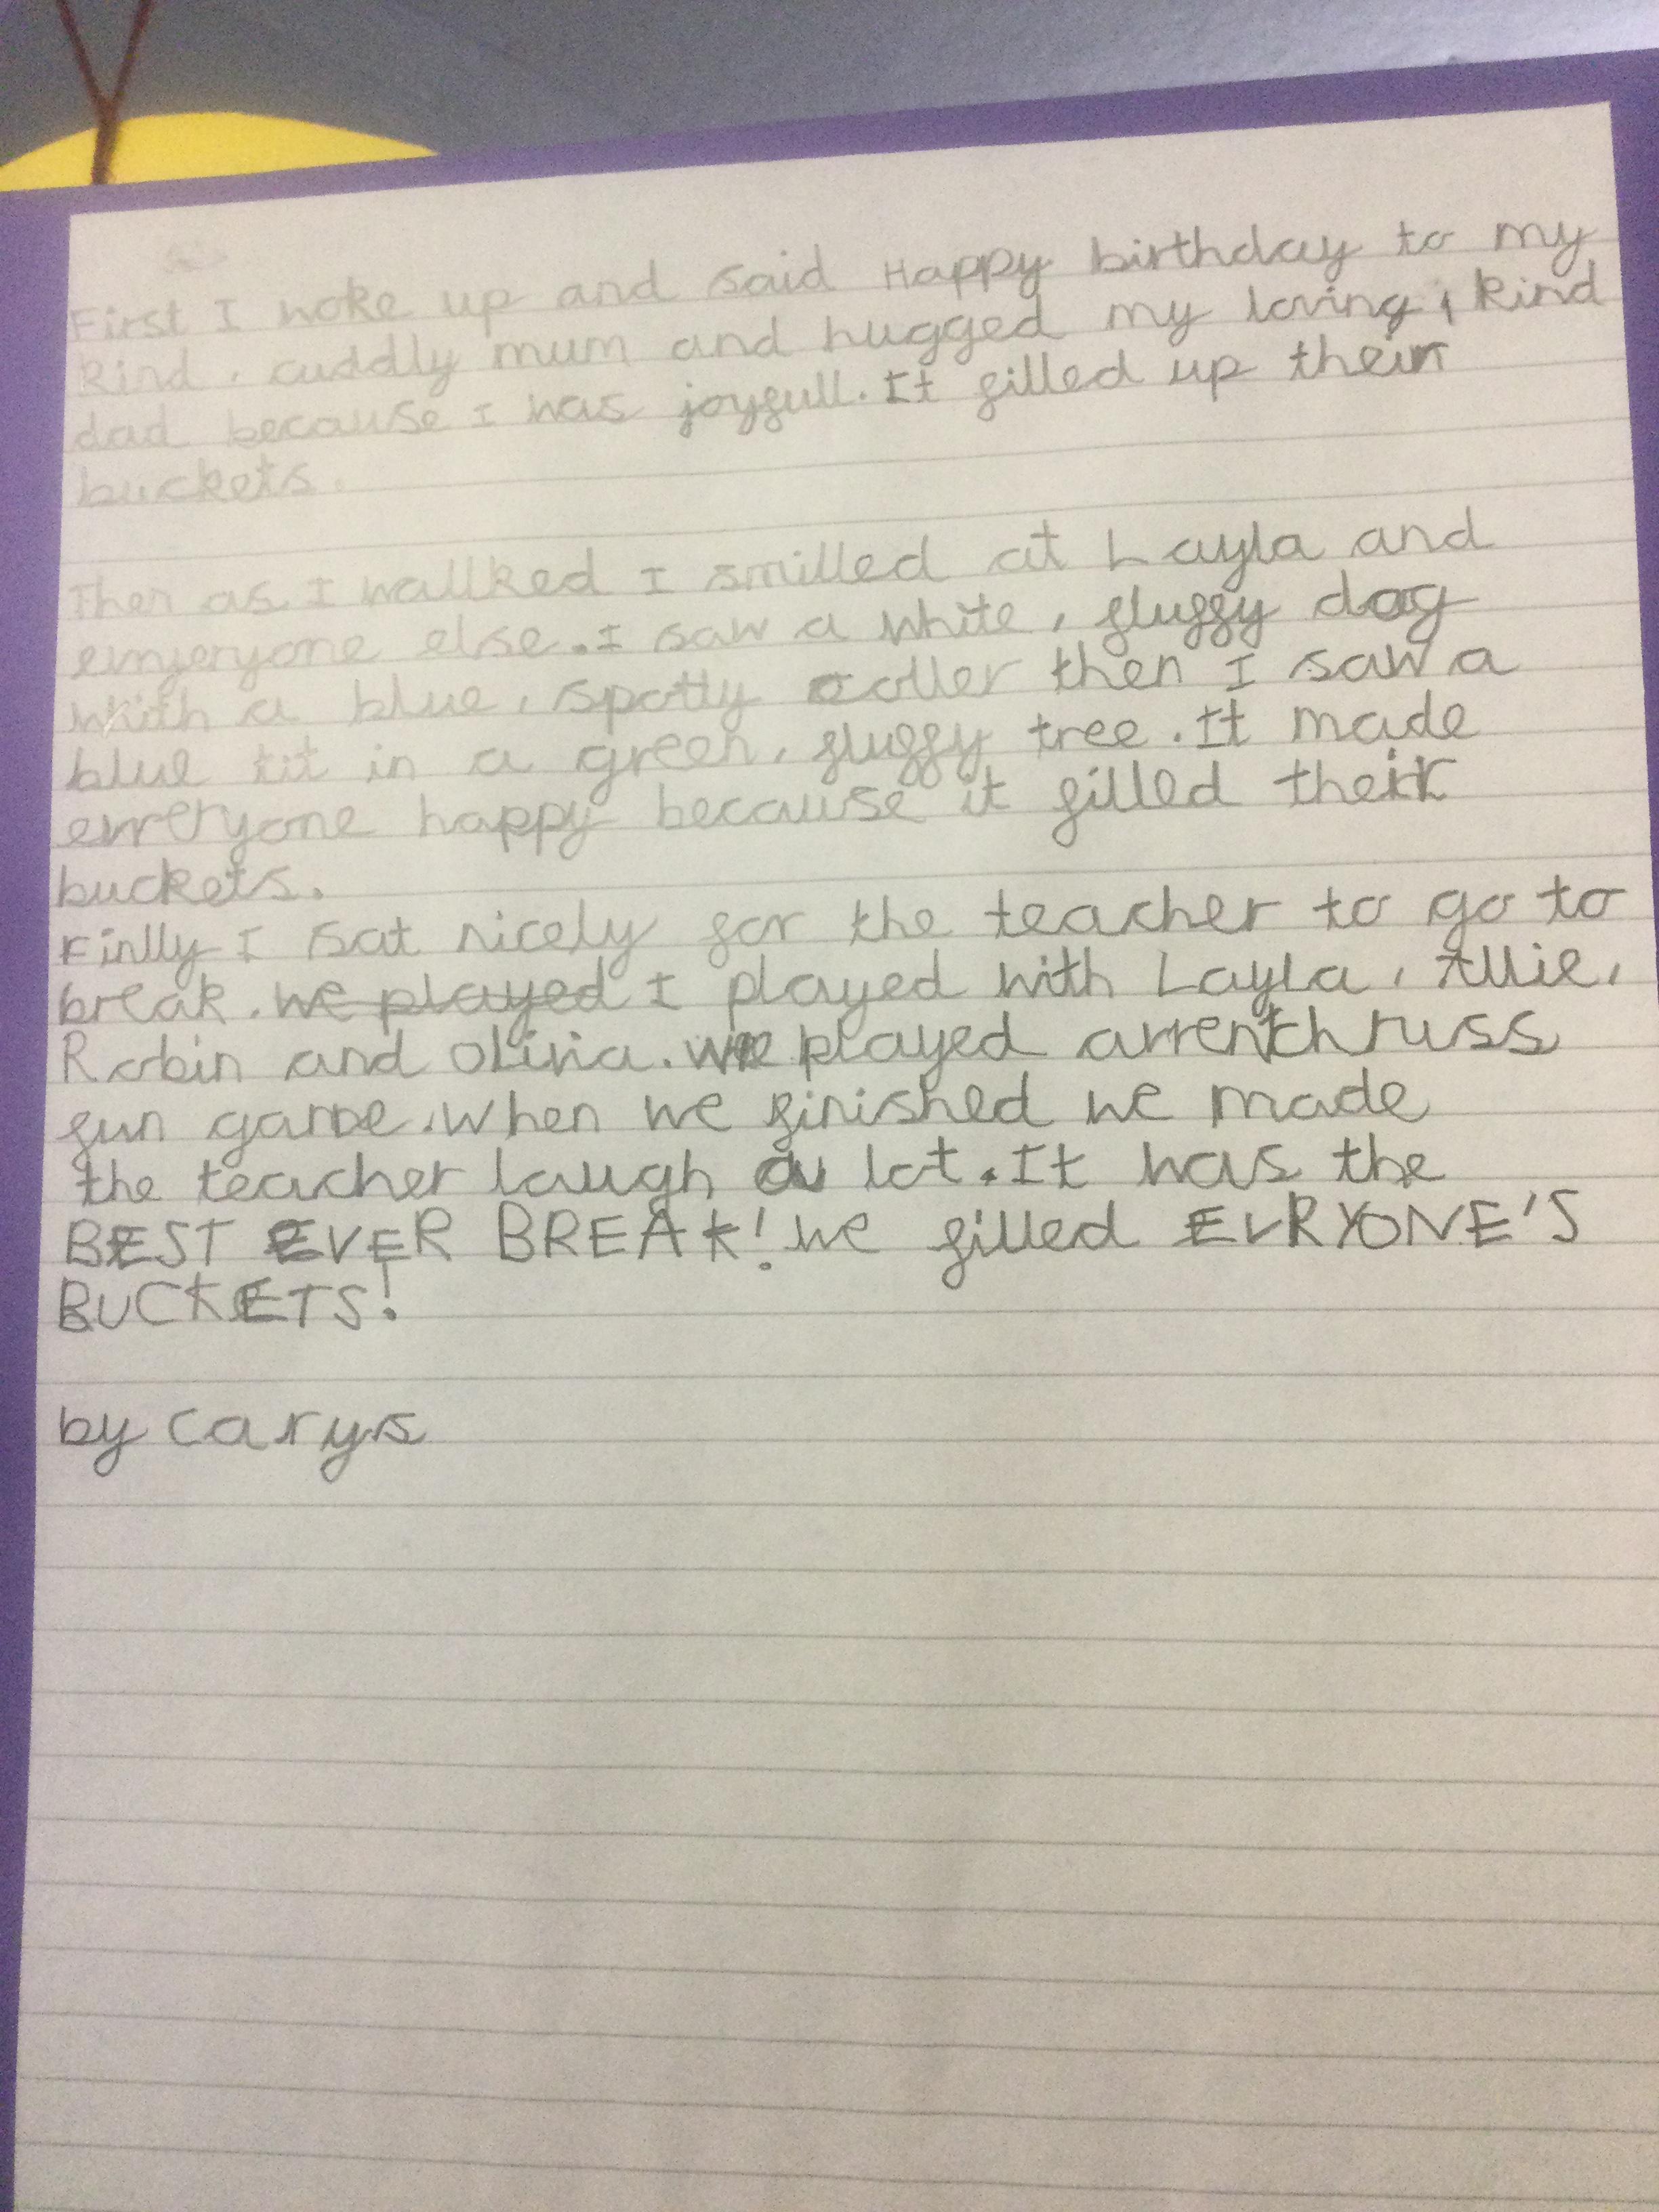 First I woke up and said Happy birthday to my
kind, cuddly mum and hugged my loving, kind
dad because I was joyfull. It filled up their
buckets.
Then as I wallked I smilled at Layla and
else. I saw a white, fluffy dog
with a blue, spotty coller then I saw a
blue tit in a green, fluffy tree. It made
everyone happy because it filled their
buckets.
Finlly I sat nicely for the teacher to go to
break. we played I played with Layla, Allie,
Robin and Olivia. we played
fun game. When we finished we made
the teacher laugh a lot. It was the
BEST EVER BREAK! we filled EVRYONE'S
BUCKETS!
by Carys